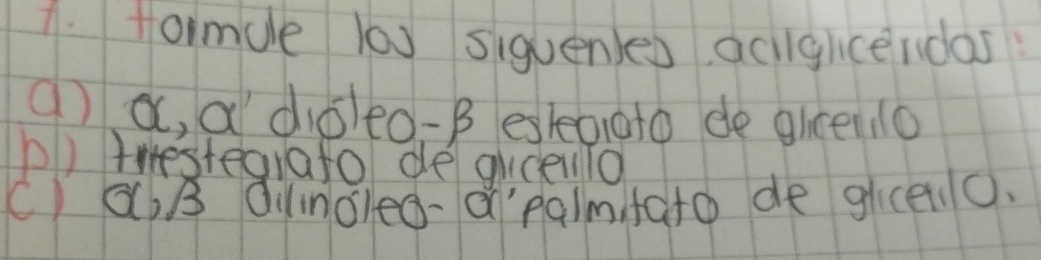 7. Formule los siguentes acilglicéridos:
a) α, α' dioleo-β estearato de glicerilo
b) triestearato de glicerilo
c) α, β dilinoleo-α' palmitato de glicerilo.